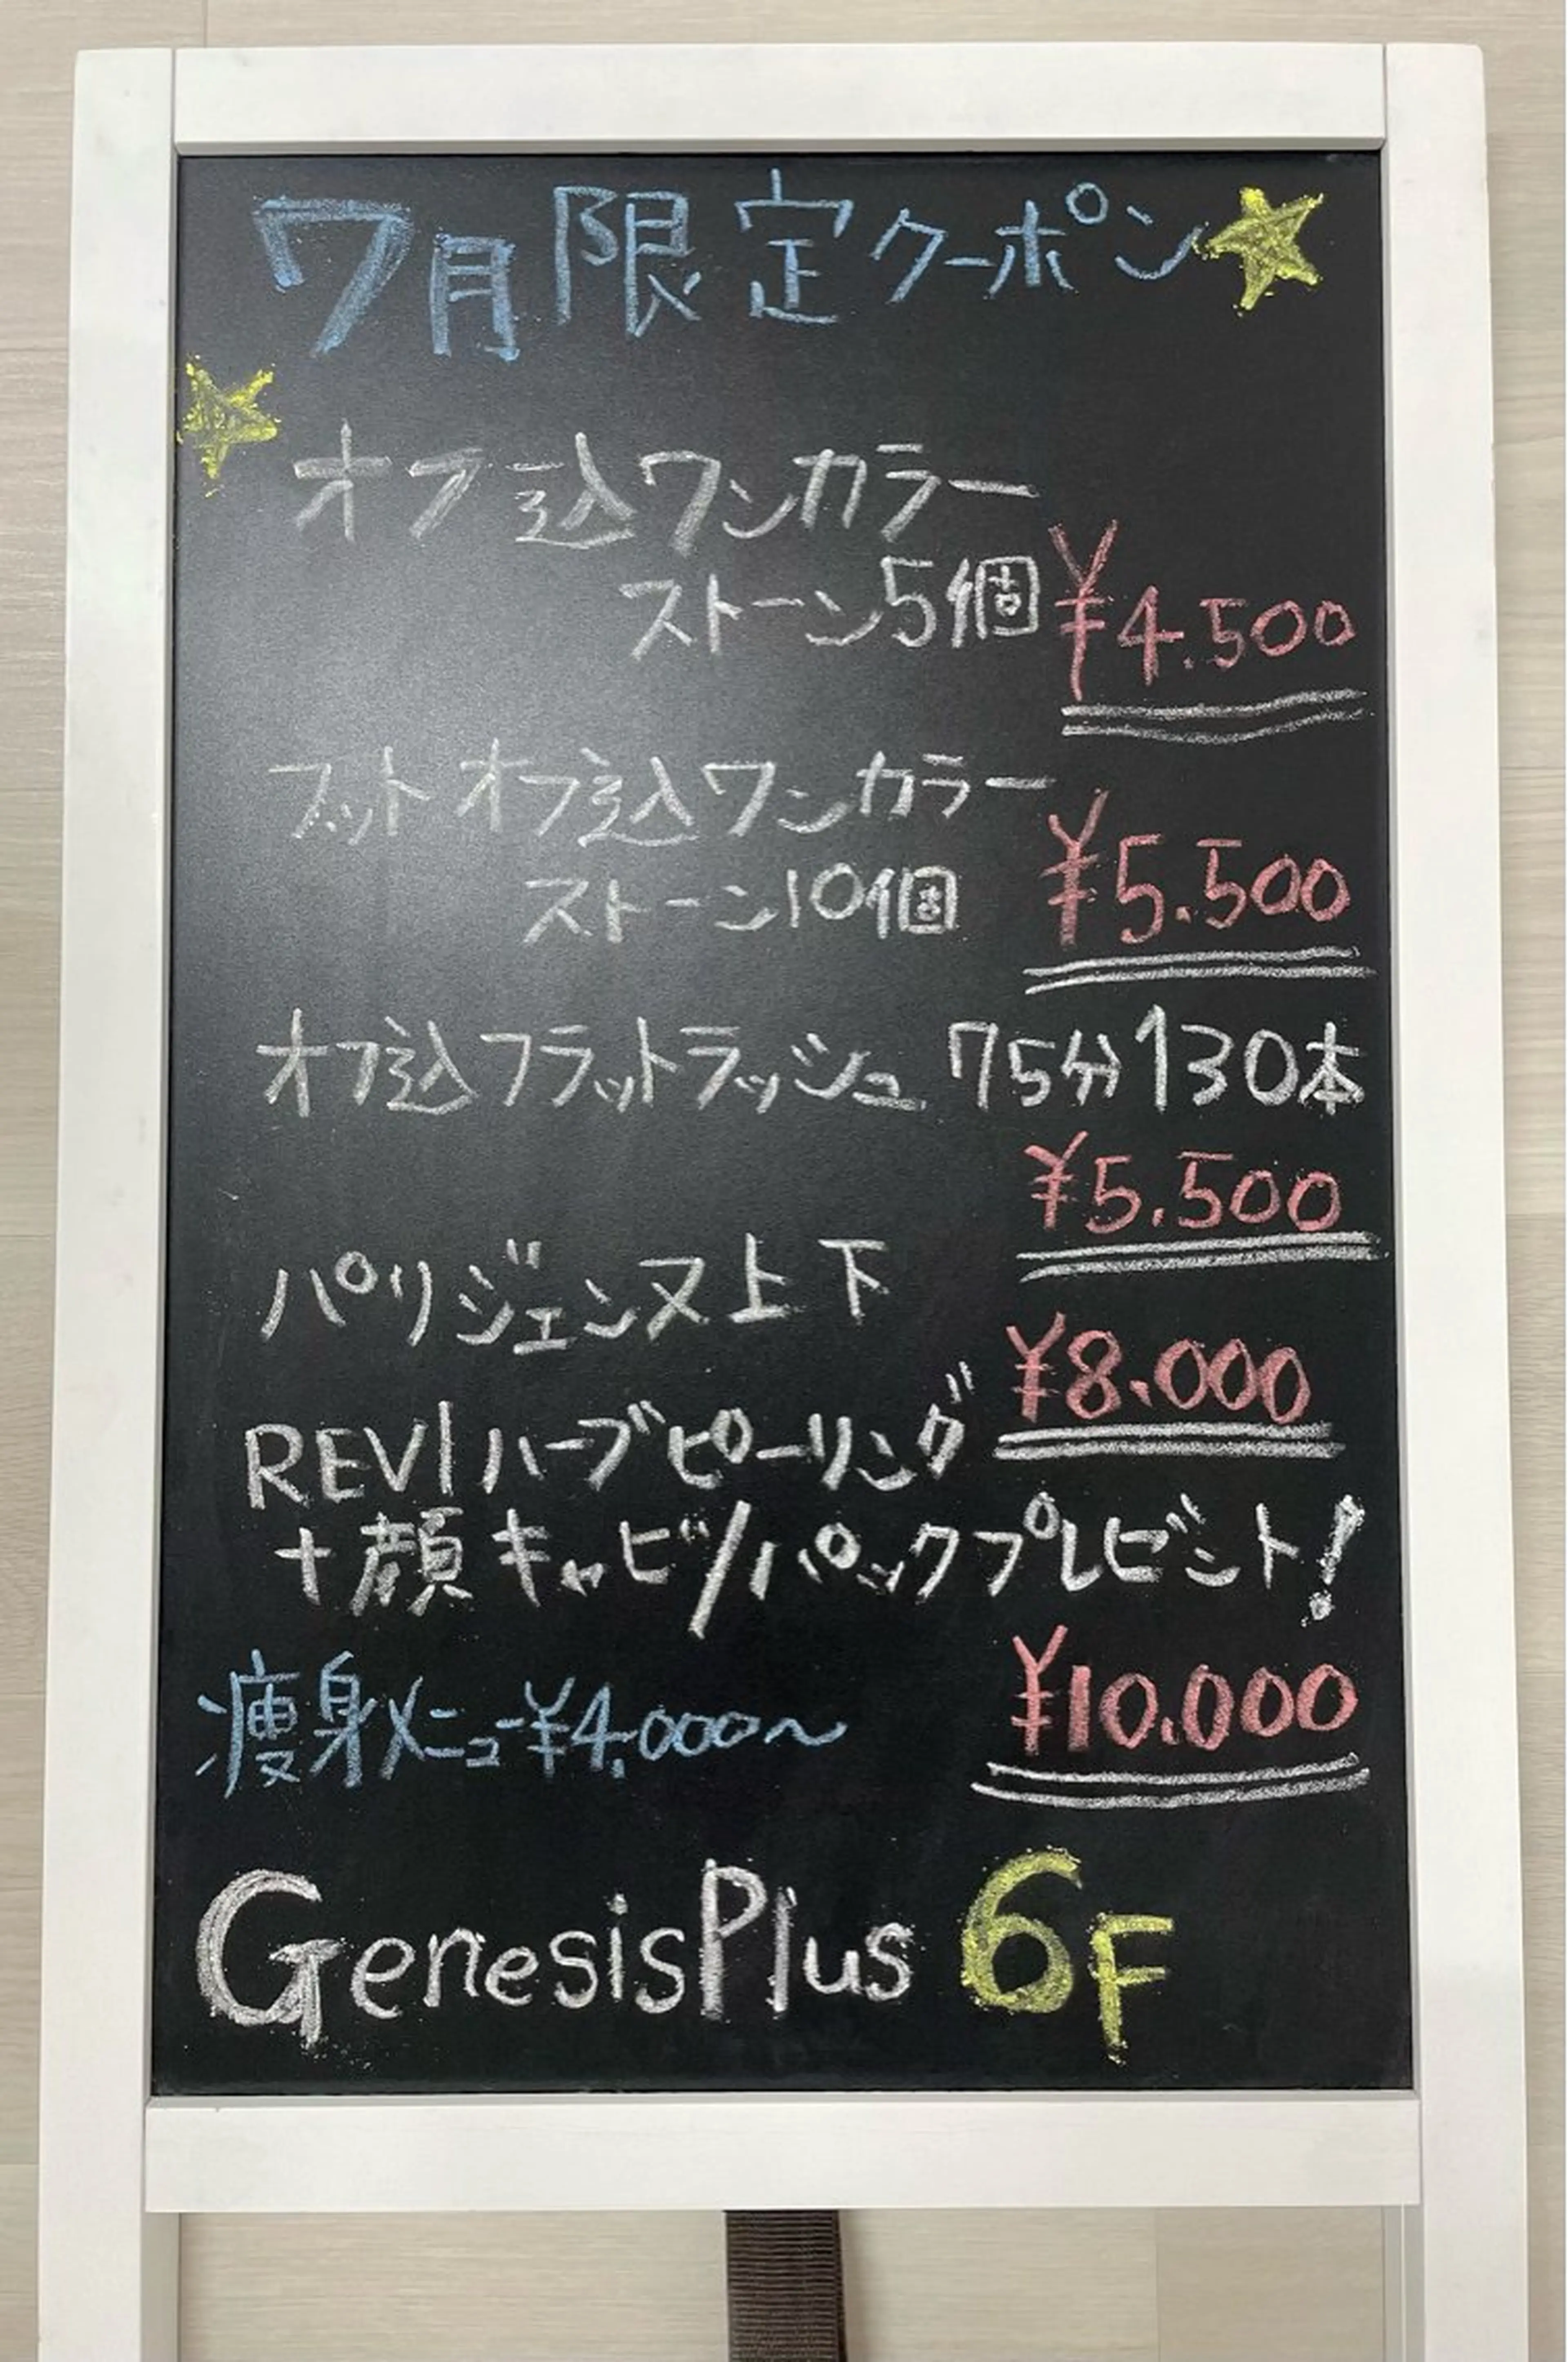 7月限定クーポン
オフ込ワンカラー
ストーン5個 ¥4.500
フットオフ込ワンカラー
ストーン10個 ¥5.500
オフ込フラットラッシュ 75分130本
¥5.500
パリジェンヌ上下
¥8.000
REVIハーブピーリング
+顔キャビ/パックプレゼント!
¥10.000
痩身メニュー¥4.000~
GenesisPlus 6F